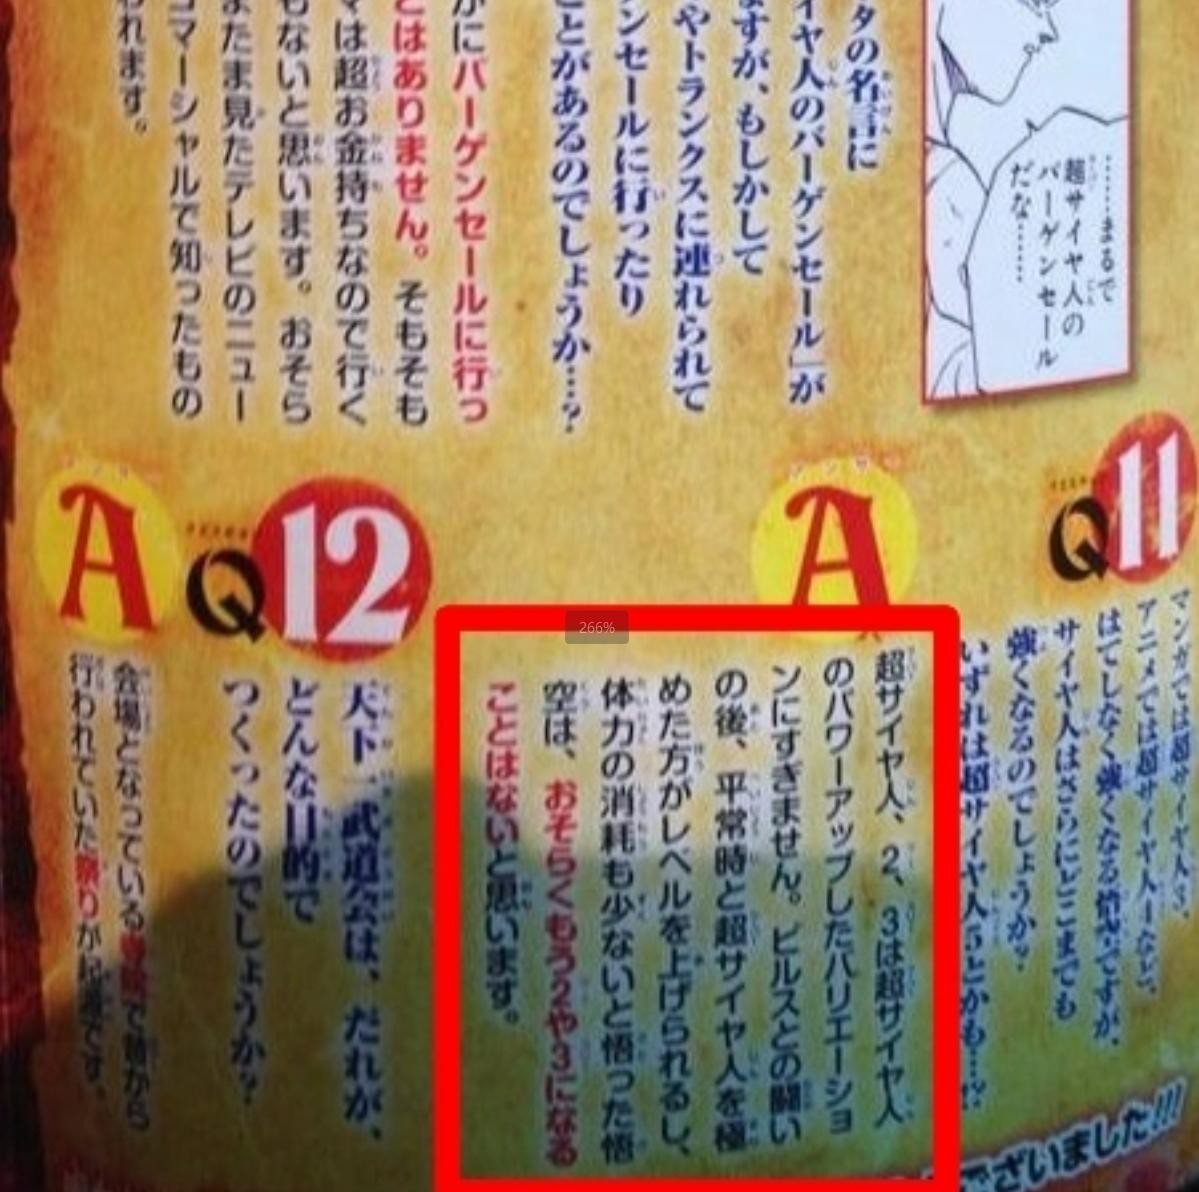 ……まるで
超サイヤ人の
バーゲンセール
だな……
タの名言に
イヤ人のバーゲンセール」が
ますが、もしかして
やトランクスに連れられて
ンセールに行ったり
ことがあるのでしょうか…？
かにバーゲンセールに行っ
とはありません。そもそも
マは超お金持ちなので行く
もないと思います。おそら
またま見たテレビのニュー
コマーシャルで知ったもの
われます。
Q11
マンガでは超サイヤ人3、
アニメでは超サイヤ人4など、
はてしなく強くなる悟空ですが、
サイヤ人はさらにどこまでも
強くなるのでしょうか？
いずれは超サイヤ人5とかも…？
A
超サイヤ人、2、3は超サイヤ人
のパワーアップしたバリエーショ
ンにすぎません。ビルスとの闘い
の後、平常時と超サイヤ人を極
めた方がレベルを上げられるし、
体力の消耗も少ないと悟った悟
空は、おそらくもう2や3になる
ことはないと思います。
Q12
天下一武道会は、だれが、
どんな目的で
つくったのでしょうか？
A
会場となっている
行われていた祭りが起源です。
ございました!!!
266%